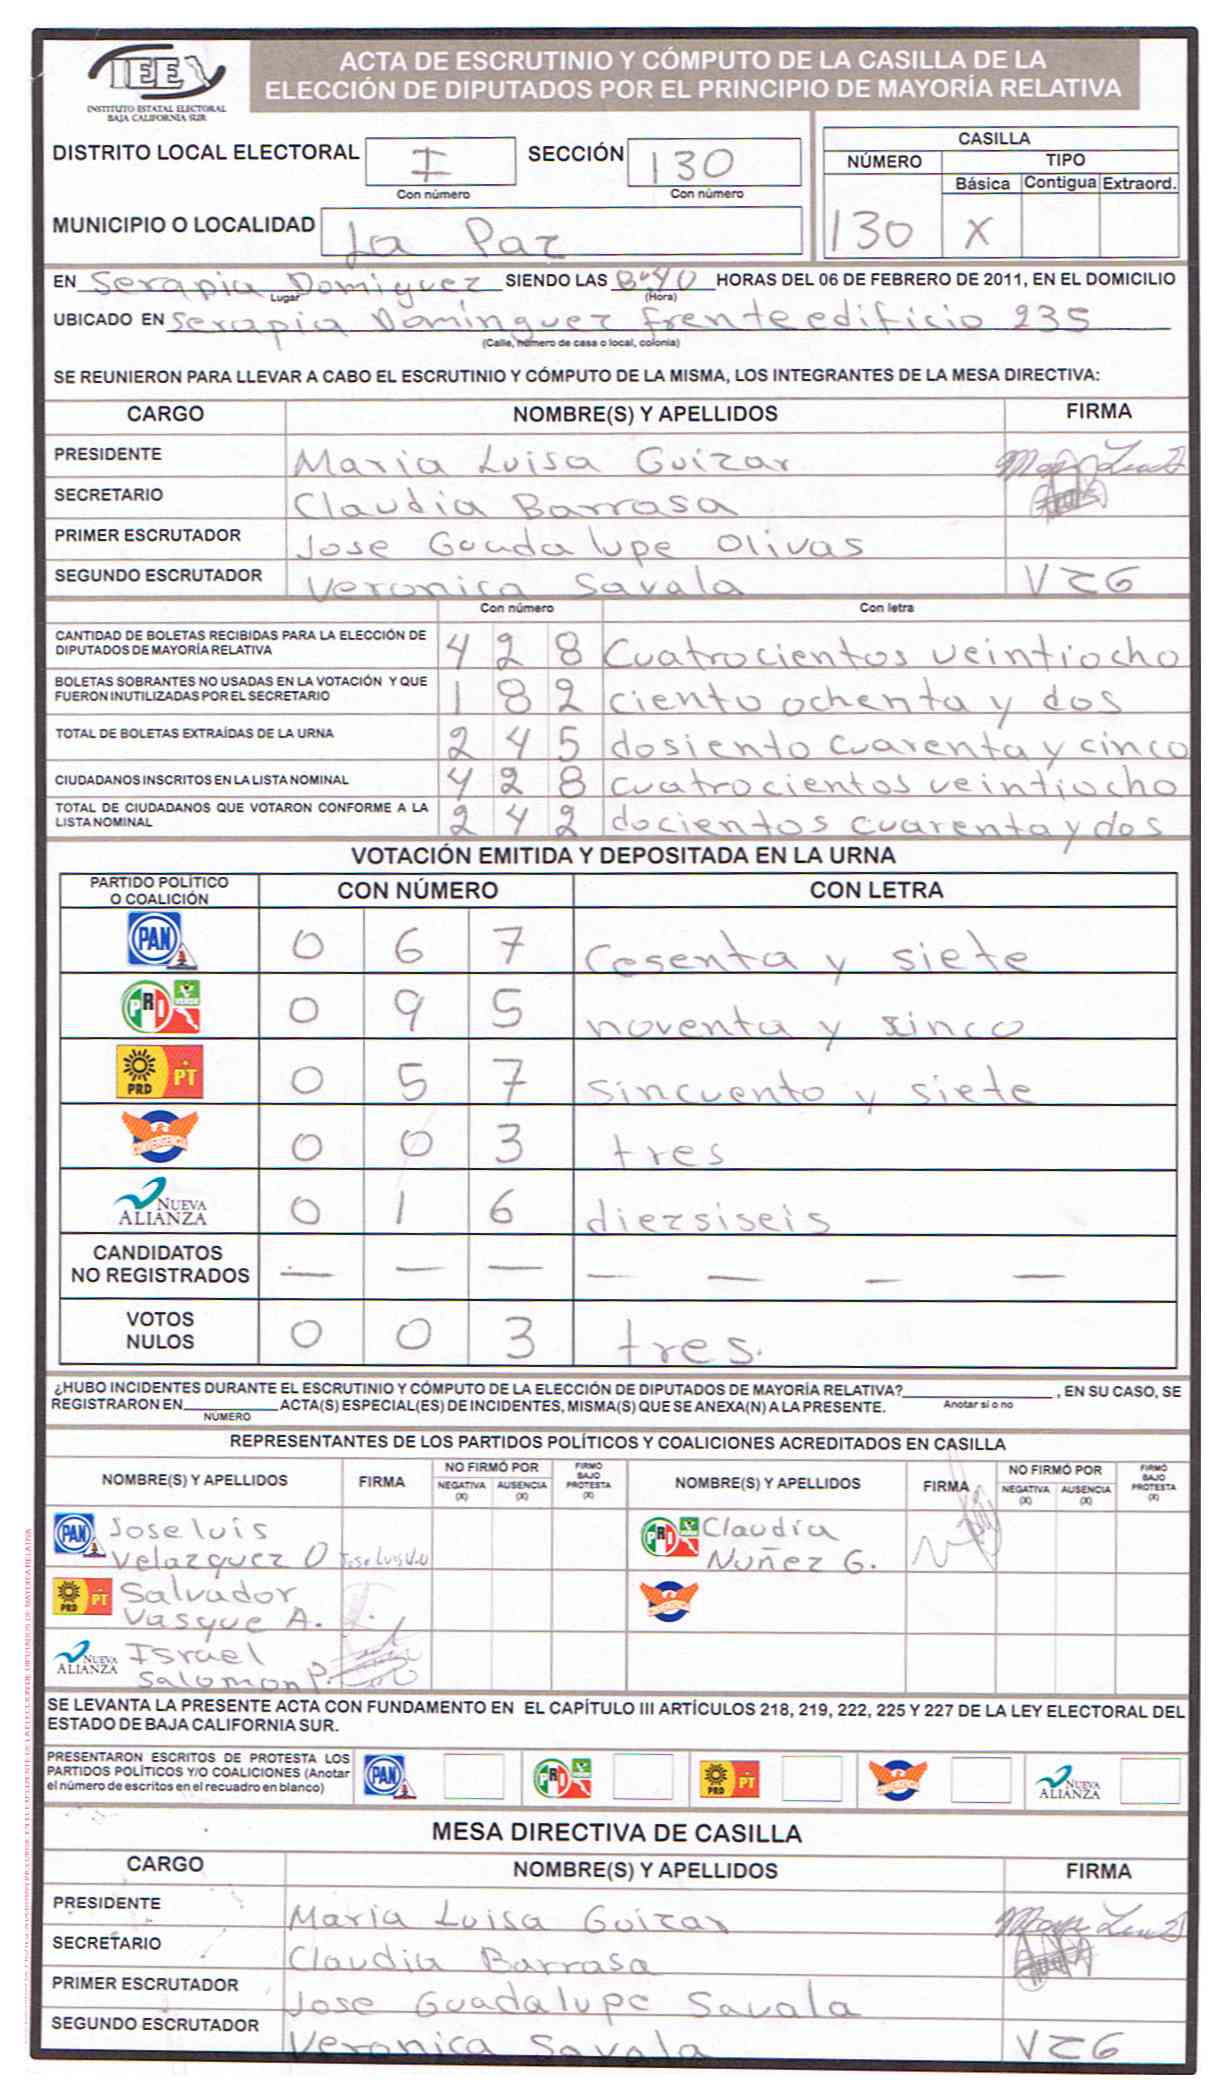 IEEX
INSTITUTO ESTATAL ELECTORAL
BAJA CALIFORNIA SUR
ACTA DE ESCRUTINIO Y CÓMPUTO DE LA CASILLA DE LA
ELECCIÓN DE DIPUTADOS POR EL PRINCIPIO DE MAYORÍA RELATIVA
DISTRITO LOCAL ELECTORAL I SECCIÓN 130
Con número Con número
MUNICIPIO O LOCALIDAD La Paz
CASILLA
NÚMERO TIPO
Básica Contigua Extraord.
130 X
EN Serapia Domiguez SIENDO LAS 8:40 HORAS DEL 06 DE FEBRERO DE 2011, EN EL DOMICILIO
Lugar (Hora)
UBICADO EN Serapia Domínguez frente edificio 235
(Calle, número de casa o local, colonia)
SE REUNIERON PARA LLEVAR A CABO EL ESCRUTINIO Y CÓMPUTO DE LA MISMA, LOS INTEGRANTES DE LA MESA DIRECTIVA:
CARGO NOMBRE(S) Y APELLIDOS FIRMA
PRESIDENTE Maria Luisa Guizar
SECRETARIO Claudia Barrasa
PRIMER ESCRUTADOR Jose Guadalupe Olivas
SEGUNDO ESCRUTADOR Veronica Savala VZG
Con número Con letra
CANTIDAD DE BOLETAS RECIBIDAS PARA LA ELECCIÓN DE
DIPUTADOS DE MAYORÍA RELATIVA 4 2 8 Cuatrocientos veintiocho
BOLETAS SOBRANTES NO USADAS EN LA VOTACIÓN Y QUE
FUERON INUTILIZADAS POR EL SECRETARIO 1 8 2 ciento ochenta y dos
TOTAL DE BOLETAS EXTRAÍDAS DE LA URNA 2 4 5 dosiento cuarenta y cinco
CIUDADANOS INSCRITOS EN LA LISTA NOMINAL 4 2 8 cuatrocientos veintiocho
TOTAL DE CIUDADANOS QUE VOTARON CONFORME A LA
LISTA NOMINAL 2 4 2 docientos cuarenta y dos
VOTACIÓN EMITIDA Y DEPOSITADA EN LA URNA
PARTIDO POLÍTICO
O COALICIÓN CON NÚMERO CON LETRA
PAN 0 6 7 cesenta y siete
PRI VERDE 0 9 5 noventa y sinco
PRD PT 0 5 7 sincuento y siete
CONVERGENCIA 0 0 3 tres
NUEVA ALIANZA 0 1 6 diezsiseis
CANDIDATOS
NO REGISTRADOS — — — — — — —
VOTOS
NULOS 0 0 3 tres.
¿HUBO INCIDENTES DURANTE EL ESCRUTINIO Y CÓMPUTO DE LA ELECCIÓN DE DIPUTADOS DE MAYORÍA RELATIVA? , EN SU CASO, SE
Anotar si o no
REGISTRARON EN ACTA(S) ESPECIAL(ES) DE INCIDENTES, MISMA(S) QUE SE ANEXA(N) A LA PRESENTE.
NÚMERO
REPRESENTANTES DE LOS PARTIDOS POLÍTICOS Y COALICIONES ACREDITADOS EN CASILLA
NOMBRE(S) Y APELLIDOS FIRMA NO FIRMÓ POR NEGATIVA (X) AUSENCIA (X) FIRMÓ BAJO PROTESTA (X) NOMBRE(S) Y APELLIDOS FIRMA NO FIRMÓ POR NEGATIVA (X) AUSENCIA (X) FIRMÓ BAJO PROTESTA (X)
PAN Jose luis PRI VERDE Claudia
Velazquez O Jose Luis V.O Nuñez G.
PRD PT Salvador
Vasque A.
NUEVA ALIANZA Israel
Salomon P.
SE LEVANTA LA PRESENTE ACTA CON FUNDAMENTO EN EL CAPÍTULO III ARTÍCULOS 218, 219, 222, 225 Y 227 DE LA LEY ELECTORAL DEL
ESTADO DE BAJA CALIFORNIA SUR.
PRESENTARON ESCRITOS DE PROTESTA LOS
PARTIDOS POLÍTICOS Y/O COALICIONES (Anotar
el número de escritos en el recuadro en blanco)
PAN PRI PRD PT NUEVA ALIANZA
MESA DIRECTIVA DE CASILLA
CARGO NOMBRE(S) Y APELLIDOS FIRMA
PRESIDENTE Maria Luisa Guizar
SECRETARIO Claudia Barrasa
PRIMER ESCRUTADOR Jose Guadalupe Savala
SEGUNDO ESCRUTADOR Veronica Savala VZG